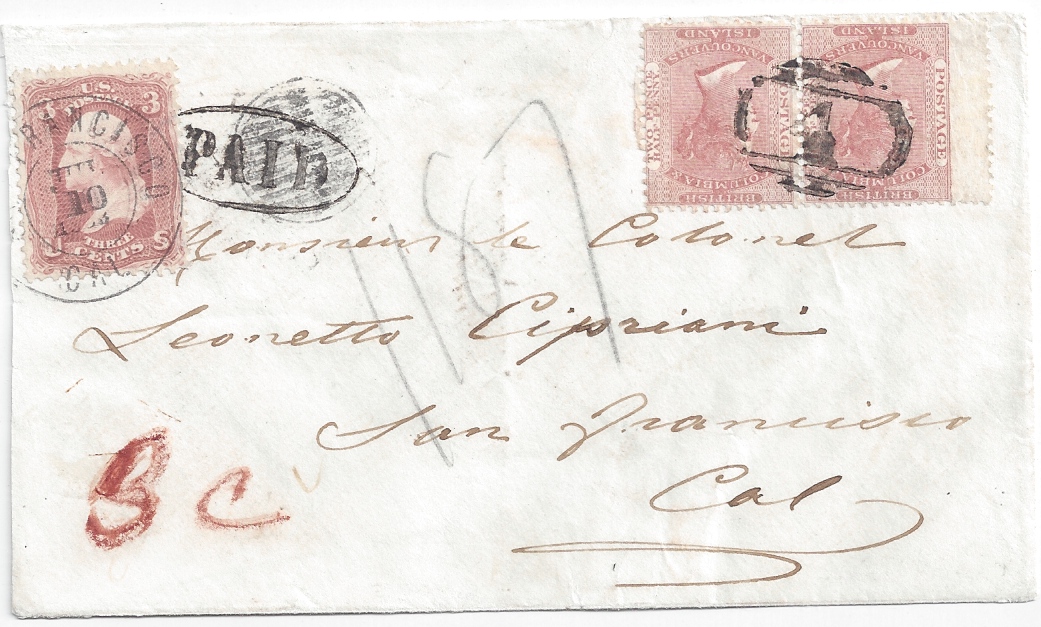 U.S. POSTAGE
3 3
THREE CENTS
U S
FRANCISCO
10
CAL
PAID
VANCOUVERS ISLAND
POSTAGE
BRITISH COLUMBIA
VANCOUVERS ISLAND
POSTAGE
BRITISH COLUMBIA
1
Monsieur le Colonel
Leonetto Cipriani
San Francisco
Cal
B C